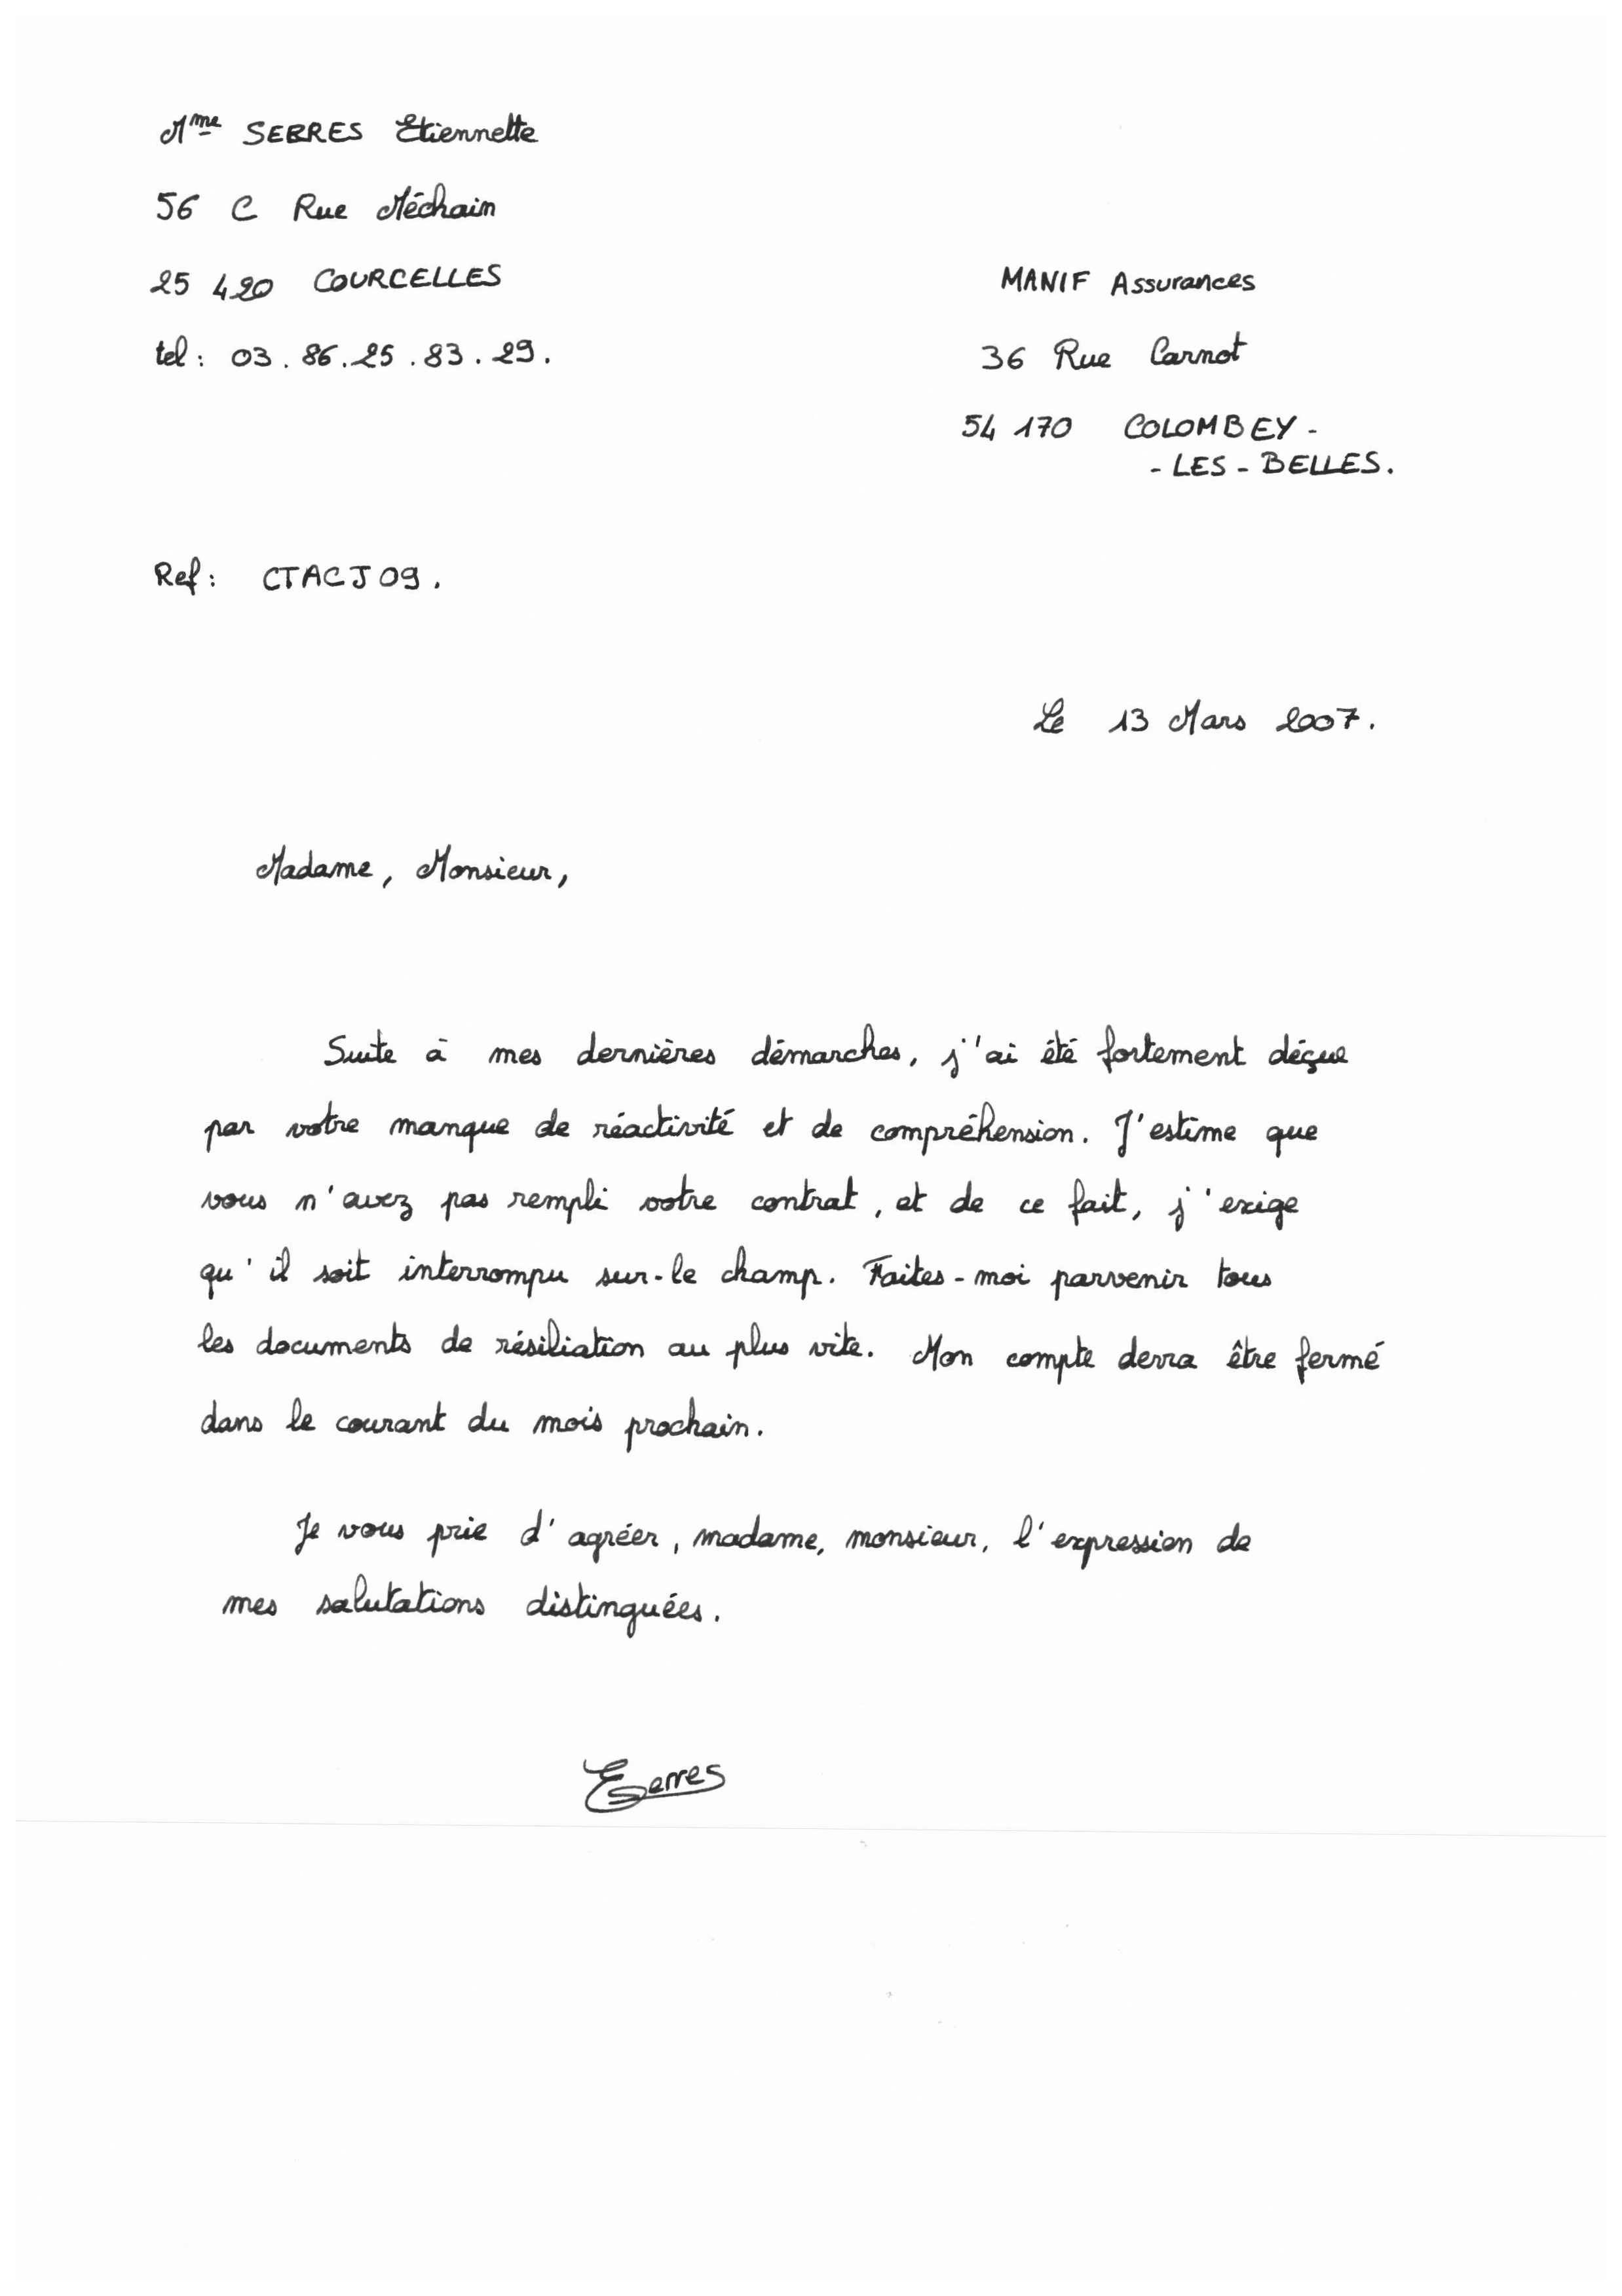 Mme SERRES Etiennette
56 C Rue Méchain
25 420 COURCELLES
tel : 03.86.25.83.29.
MANIF Assurances
36 Rue Carnot
54 170 COLOMBEY-
-LES-BELLES.
Ref : CTACJ09.
Le 13 Mars 2007.
Madame, Monsieur,
Suite à mes dernières démarches, j'ai été fortement déçue
par votre manque de réactivité et de compréhension. J'estime que
vous n'avez pas rempli votre contrat, et de ce fait, j'exige
qu'il soit interrompu sur-le champ. Faites-moi parvenir tous
les documents de résiliation au plus vite. Mon compte devra être fermé
dans le courant du mois prochain.
Je vous prie d'agréer, madame, monsieur, l'expression de
mes salutations distinguées.
ESerres